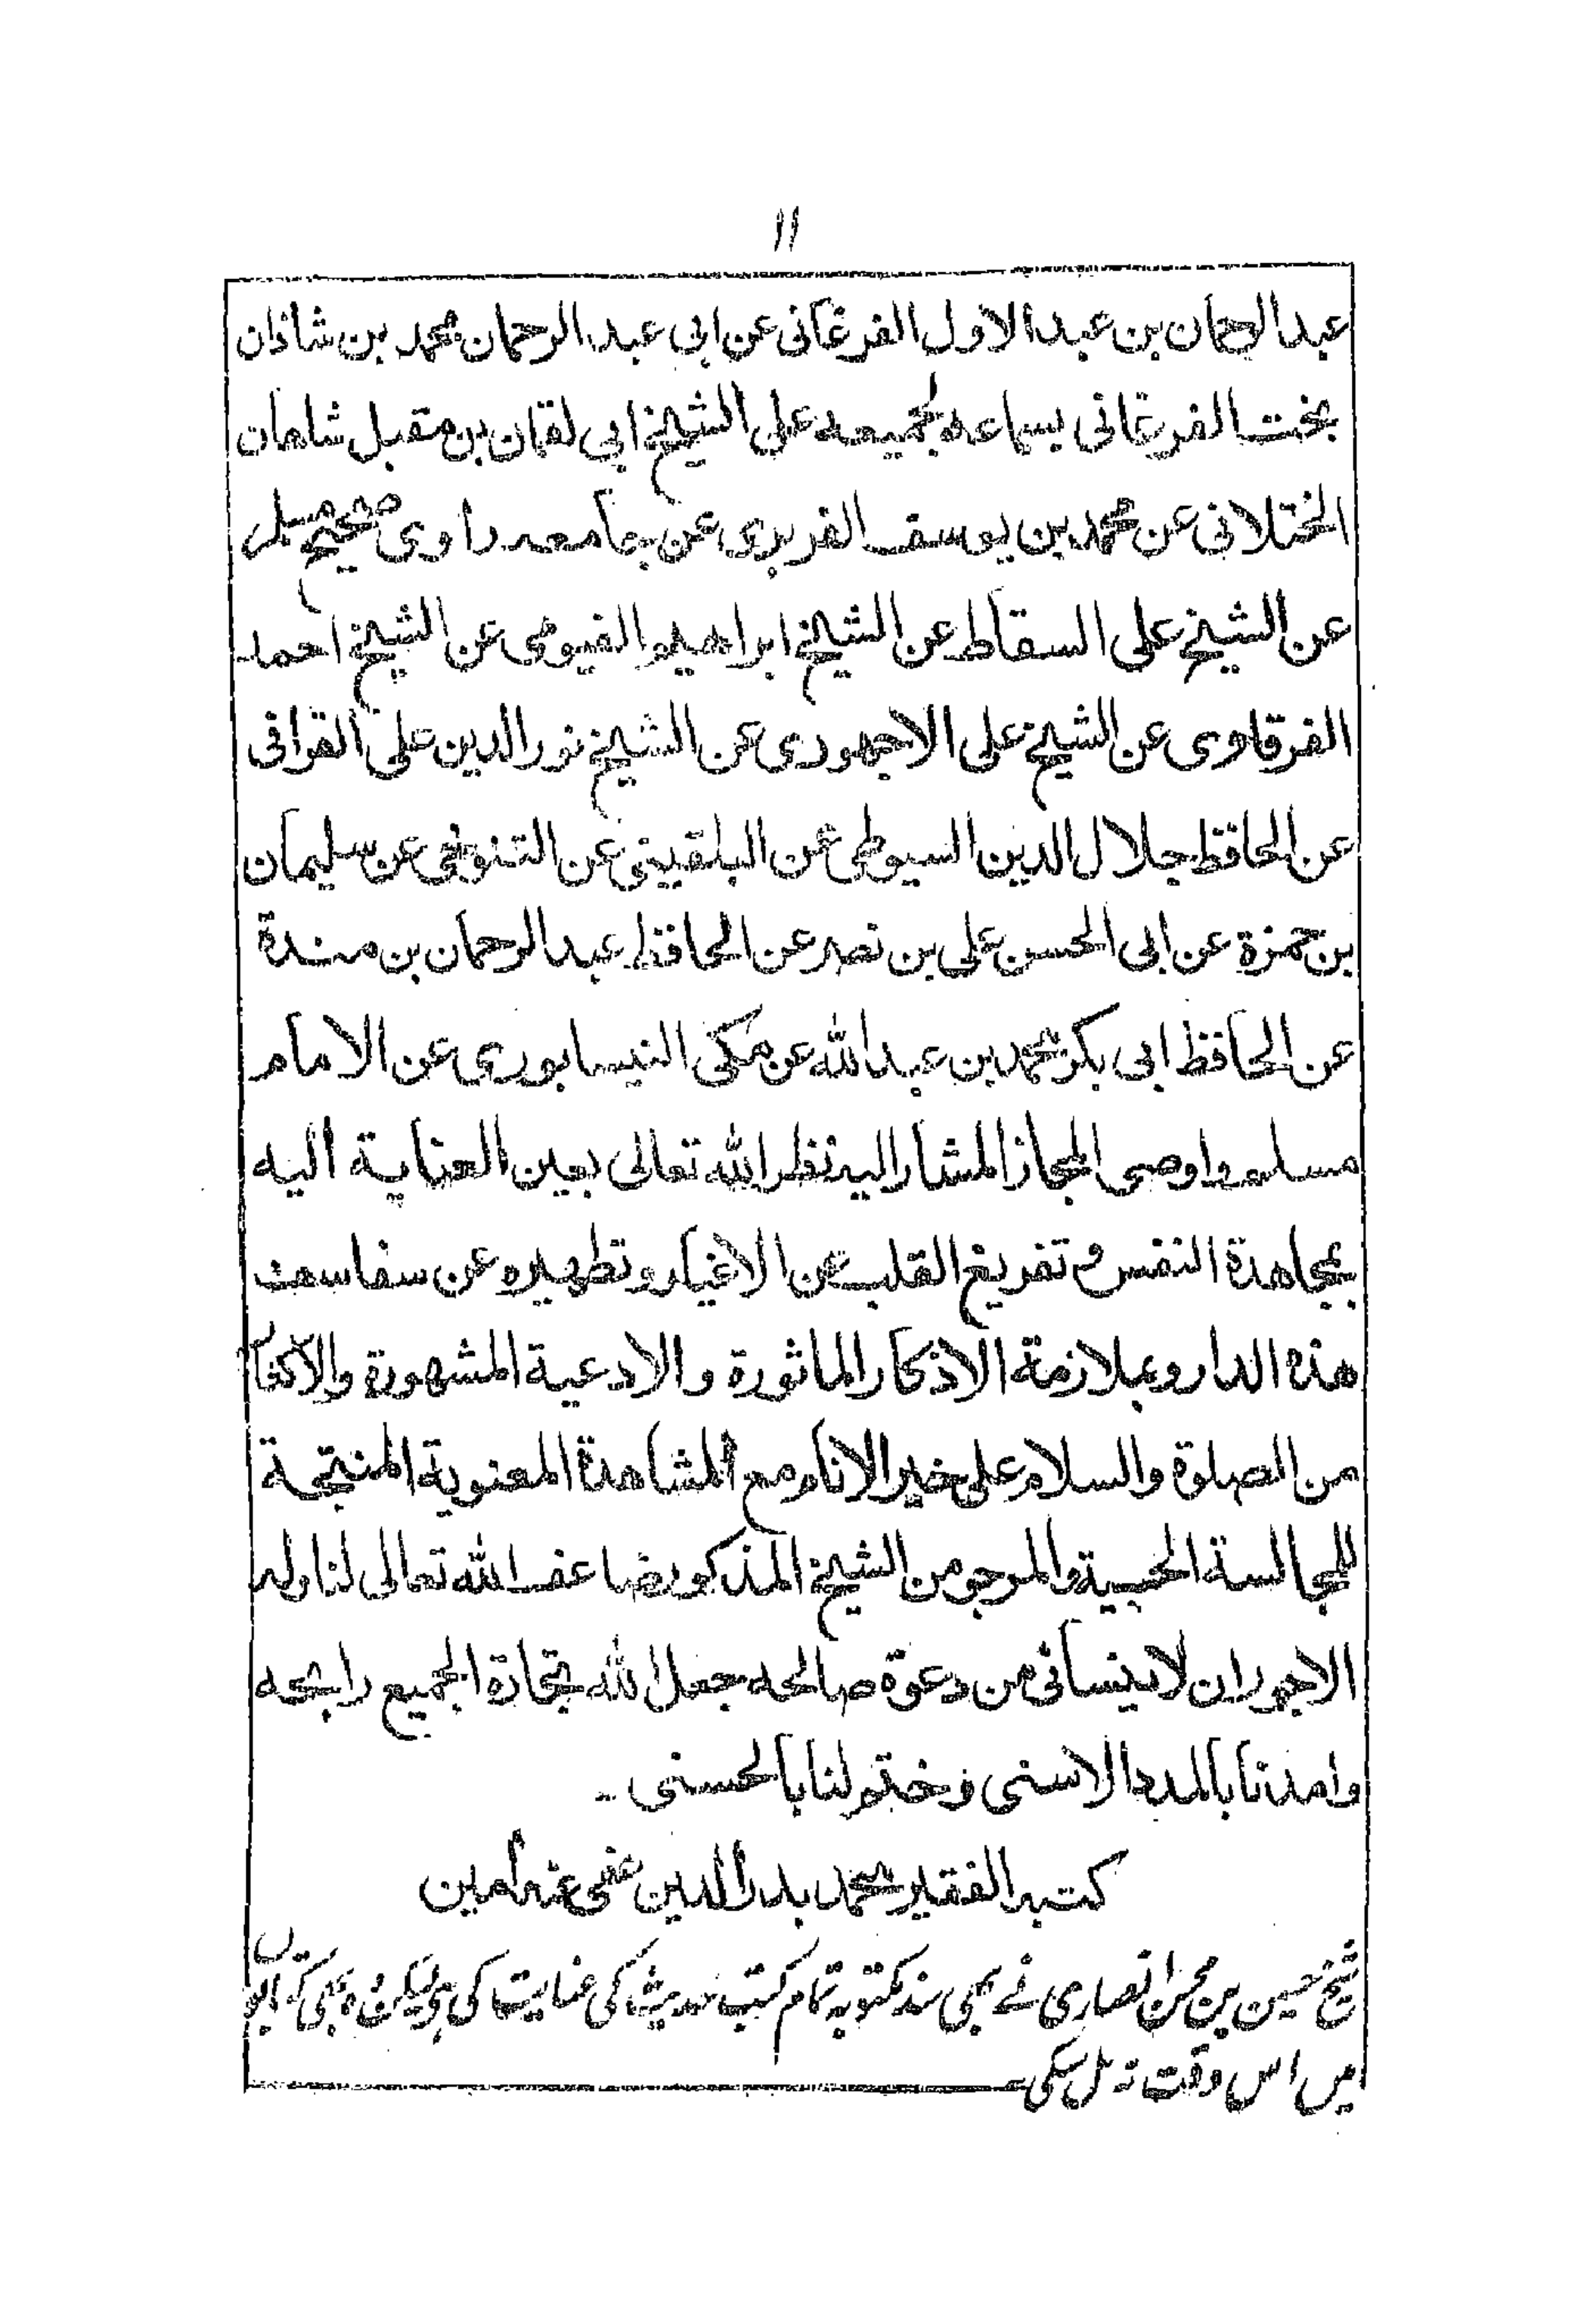 ۱۱
عبدالرحمان بن عبدالاول الفرغانی عن ابی عبدالرحمان محمد بن شاذان
بخت الفرغانی بسماعه لجمیعه علی الشیخ ابی لقمان بن مقبل شاهان
الختلانی عن محمد بن یوسف الفربری عن جامعه واروی صحیح مسلم
عن الشیخ علی السقاط عن الشیخ ابراهیم الفیومی عن الشیخ احمد
الفرقاوی عن الشیخ علی الاجهوری عن الشیخ نورالدین علی القرافی
عن الحافظ جلال الدین السیوطی عن البلقینی عن التنوخی عن سلیمان
بن حمزة عن ابی الحسن علی بن نصر عن الحافظ عبدالرحمان بن مندة
عن الحافظ ابی بکر محمد بن عبدالله عن مکی النیسابوری عن الامام
مسلم واوصی المجاز المشار الیه نظر الله تعالی بعین العنایة الیه
بمجاهدة النفس و تفریغ القلب عن الاغیار و تطهیره عن سفاسف
هذه الدار وبملازمة الاذکار الماثورة والادعیة المشهورة والاکثار
من الصلوة والسلام علی خیر الانام مع المشاهدة المعنویة المنتجة
للمجالسة الحبیة والمرجو من الشیخ المذکور ضاعف الله تعالی لنا وله
الاجور ان لا ینسانی من دعوة صالحه جعل الله تجارة الجمیع رابحه
وامدنا بالمدد الاسنی وختم لنا بالحسنی
کتبه الفقیر محمد بدرالدین عفی عنه امین
شیخ حسین بن محسن انصاری نے بھی سند مکتوبہ تمام کتب حدیث کی عنایت کی ہی لیکن وہ بھی کتابوں
میں اس وقت نہ مل سکی